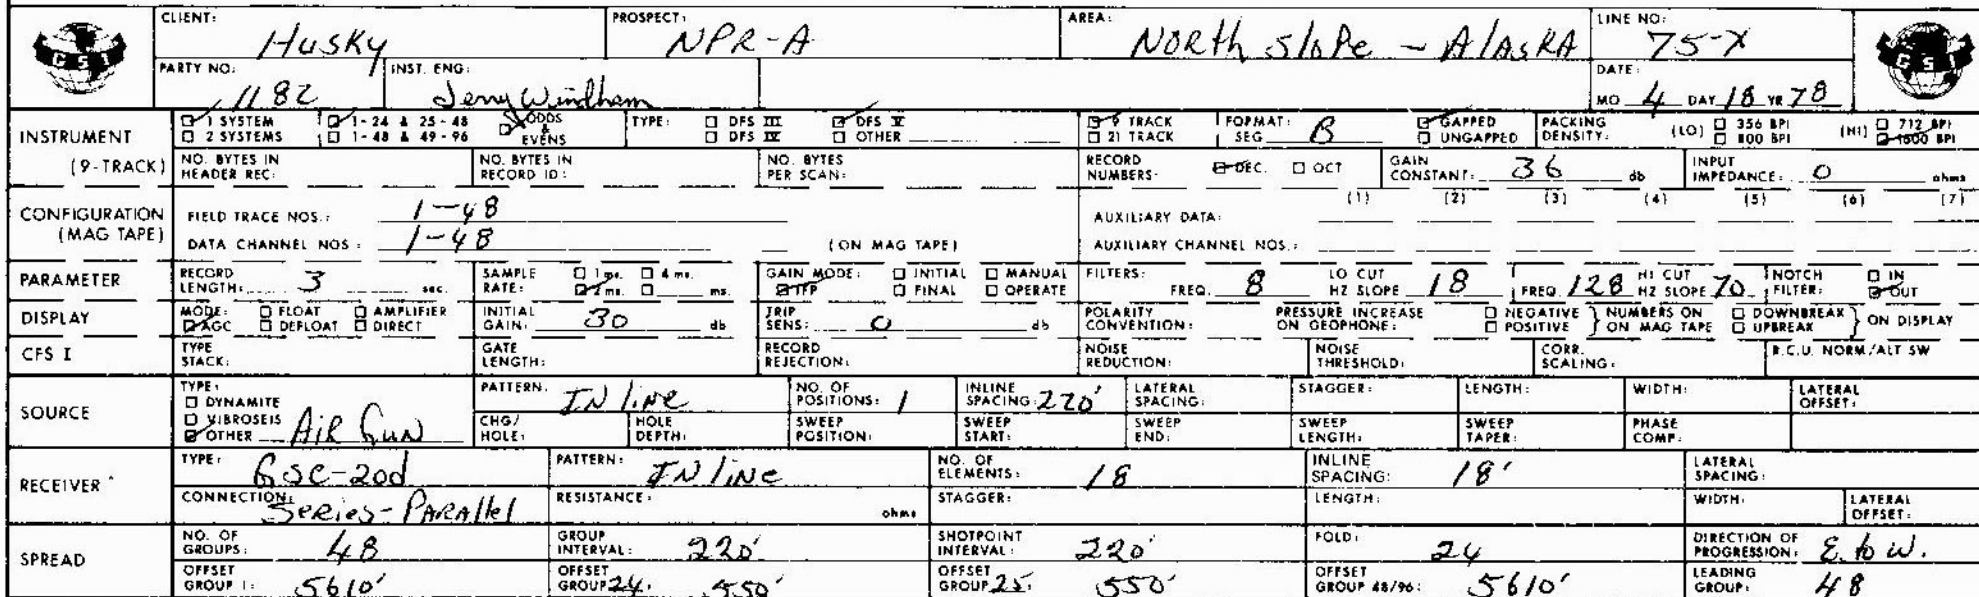 GSI
CLIENT: Husky PROSPECT: NPR-A AREA: NORTH SLOPE - ALASKA LINE NO: 75-X
GSI
PARTY NO: 1182 INST. ENG: Jerry Windham DATE: MO 4 DAY 18 YR 78
INSTRUMENT 1 SYSTEM 1-24 & 25-48 ODDS & EVENS TYPE: DFS III DFS V 9 TRACK FORMAT: SEG B GAPPED PACKING DENSITY: (LO) 356 BPI (HI) 712 BPI
2 SYSTEMS 1-48 & 49-96 DFS IV OTHER 21 TRACK UNGAPPED 800 BPI 1600 BPI
(9-TRACK) NO. BYTES IN HEADER REC: NO. BYTES IN RECORD ID: NO. BYTES PER SCAN: RECORD NUMBERS: DEC. OCT GAIN CONSTANT: 36 db INPUT IMPEDANCE: 0 ohms
CONFIGURATION (MAG TAPE) FIELD TRACE NOS.: 1-48 AUXILIARY DATA: (1) (2) (3) (4) (5) (6) (7)
DATA CHANNEL NOS: 1-48 (ON MAG TAPE) AUXILIARY CHANNEL NOS.:
PARAMETER RECORD LENGTH: 3 sec. SAMPLE RATE: 1 ms. 4 ms. 2 ms. ms. GAIN MODE: INITIAL MANUAL IFP FINAL OPERATE FILTERS: FREQ. 8 LO CUT HZ SLOPE 18 FREQ. 128 HI CUT HZ SLOPE 70 NOTCH FILTER: IN OUT
DISPLAY MODE: FLOAT AMPLIFIER AGC DEFLOAT DIRECT INITIAL GAIN: 30 db TRIP SENS: 0 db POLARITY CONVENTION: PRESSURE INCREASE ON GEOPHONE: NEGATIVE POSITIVE NUMBERS ON ON MAG TAPE DOWNBREAK UPBREAK ON DISPLAY
CFS I TYPE STACK: GATE LENGTH: RECORD REJECTION: NOISE REDUCTION: NOISE THRESHOLD: CORR. SCALING: R.C.U. NORM/ALT SW
SOURCE TYPE: DYNAMITE VIBROSEIS OTHER Air Gun PATTERN: IN line NO. OF POSITIONS: 1 INLINE SPACING: 220' LATERAL SPACING: STAGGER: LENGTH: WIDTH: LATERAL OFFSET:
CHG/HOLE: HOLE DEPTH: SWEEP POSITION: SWEEP START: SWEEP END: SWEEP LENGTH: SWEEP TAPER: PHASE COMP:
RECEIVER TYPE: GSC-20d PATTERN: IN line NO. OF ELEMENTS: 18 INLINE SPACING: 18' LATERAL SPACING:
CONNECTION: Series-Parallel RESISTANCE: ohms STAGGER: LENGTH: WIDTH: LATERAL OFFSET:
SPREAD NO. OF GROUPS: 48 GROUP INTERVAL: 220' SHOTPOINT INTERVAL: 220' FOLD: 24 DIRECTION OF PROGRESSION: E. to W.
OFFSET GROUP 1: 5610' OFFSET GROUP 24: 550' OFFSET GROUP 25: 550' OFFSET GROUP 48/96: 5610' LEADING GROUP: 48